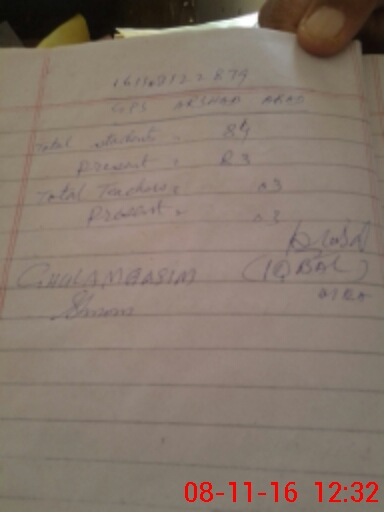 GPS ARSHAD ABAD
Total students = 84
Present = 83
Total Teachers = 03
Present = 03
GHULAM QASIM
(IQBAL)
08-11-16 12:32